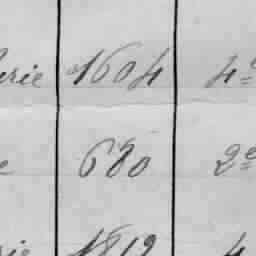 rie 1604 4e
e 680 2e
rie 1812 4